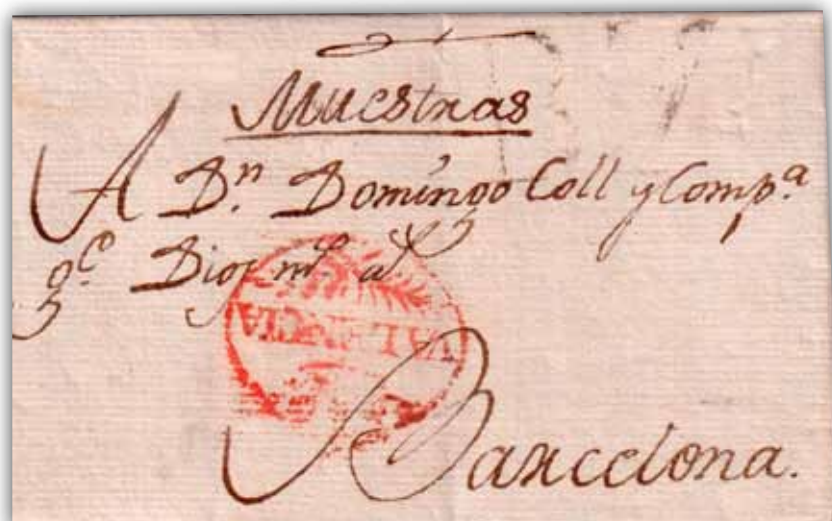 Muestras
A Dn. Domingo Coll y Compa.
gE. Dios ms. as.
VALENCIA
Barcelona.